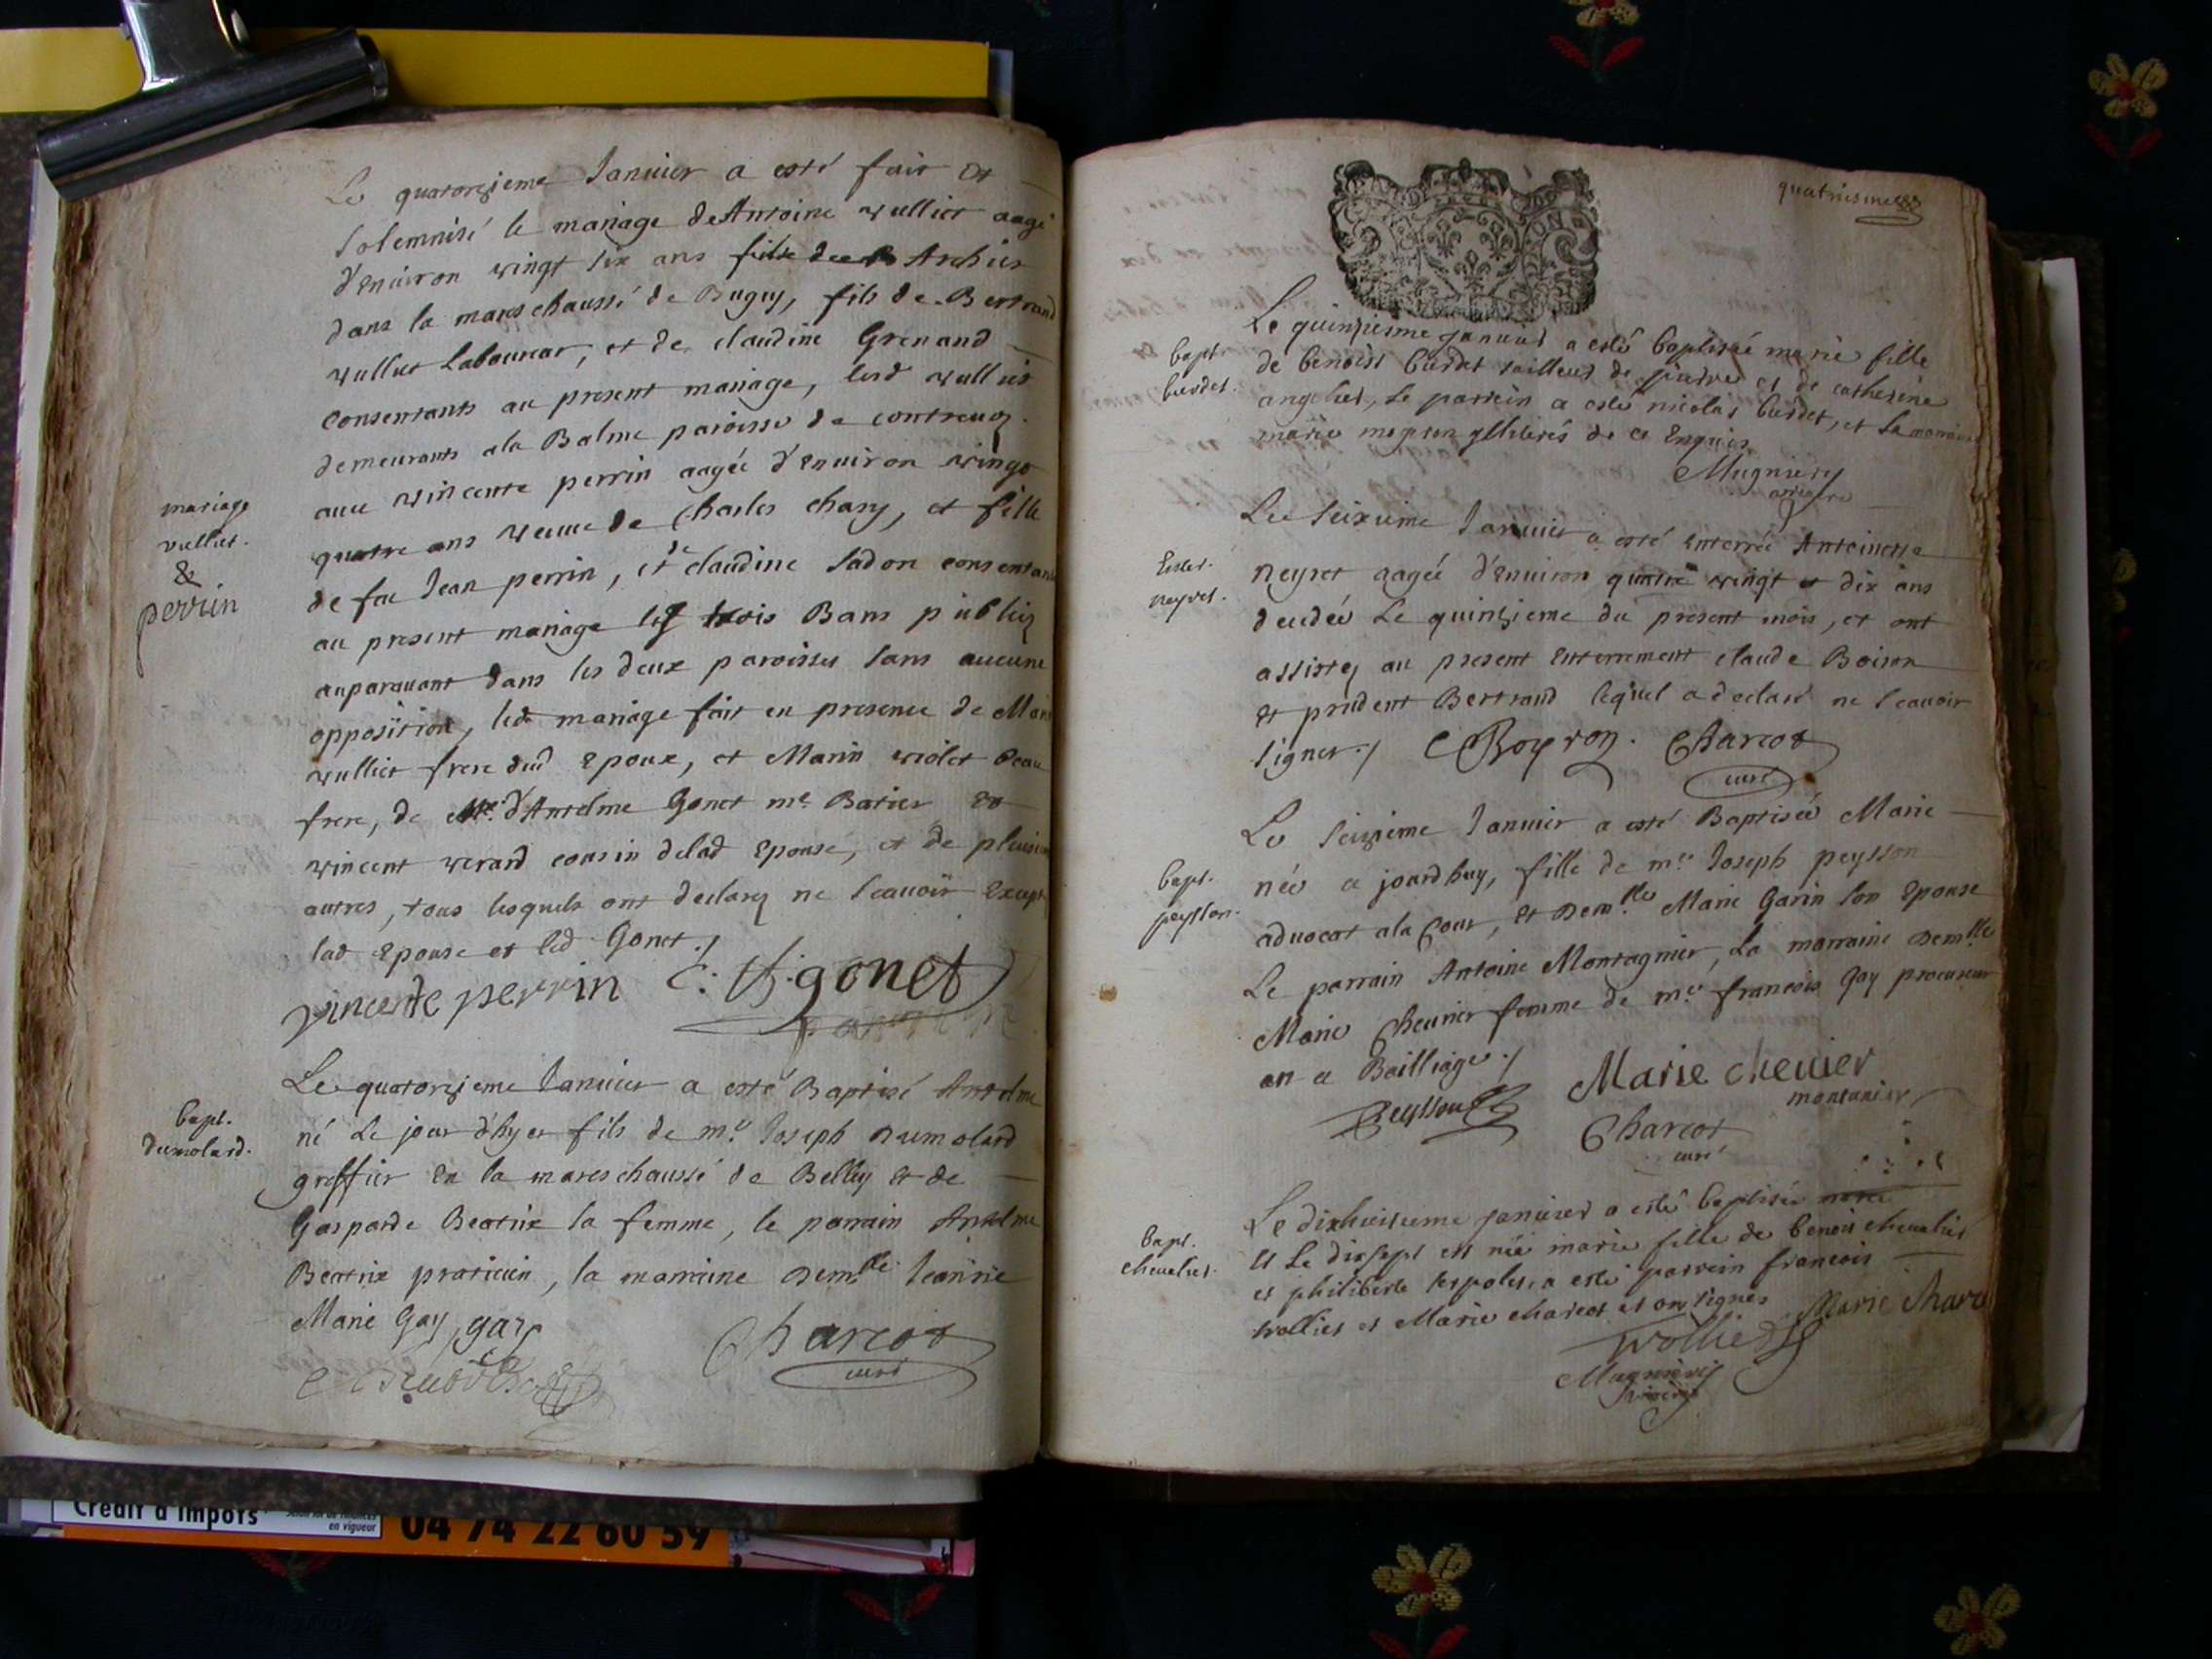 Le quatorzieme Januier a esté fait et
solemnisé le mariage de Antoine vulliet aagé
d'enuiron vingt six ans Archier
dans la mareschaussé de Bugey, fils de Bertrand
vulliet Laboureur, et de claudine Grenand
consentants au present mariage, lesd vulliet
demeurants a la Balme paroisse de contreuoz
auec vincente perrin aagée d'enuiron vingt
quatre ans veuue de Charles chary, et fille
de feu Jean perrin, et de claudine Sadon consentants
au present mariage les trois Bans publiez
auparauant dans les deux paroisses sans aucune
opposition, led. mariage fait en presence de
vulliet frere dud Epoux, et Marin violet Beau
frere, de d'Antelme Gonet me. Batier et
vincent verard cousin delad Epouse, et de plusieurs
autres, tous lesquels ont declarez ne scauoir Except
lad Epouse et led Gonet ./
mariage
vulliet.
&
perrin
vincente perrin C. A. gonet
Le quatorzieme Januier a esté Baptisé Antelme
né Le jour d'hyer fils de me. Joseph Dumolard
greffier En la mareschaussé de Belley et de
Gasparde Beatrix sa femme, le parrain Antelme
Beatrix praticien, la marraine Demlle. Jeanne
Marie Gay gay
bapt.
Dumolard.
Charcot
curé
quatriesme
Le quinziesme januier a esté baptisée marie fille
de benoist burdet tailleur de pierre et de catherine
angelier, Le parrein a esté nicolas burdet, et La marraine
marie
bapt
burdet.
Mugniery
Le seixieme Januier a esté Enterrée Antoinette
neyret aagée d'enuiron quatre vingt et dix ans
decedée Le quinzieme du present mois, et ont
assistez au present Enterrement claude Boiron
et prudent Bertrand lequel a declaré ne scauoir
signer ./ C Boyron. Charcot
curé
neyret.
Le seizieme Januier a esté Baptisée Marie
née ce jourdhuy, fille de me. Joseph peysson
aduocat a la Cour, et Demlle. Marie Garin son Epouse
Le parrain Antoine Montagnier, La marraine Demlle
Marie Cheurier femme de me. francois Gay procureur
au ce Bailliage ./
bapt.
peysson.
Peysson
Marie cheuier
montanier
Charcot
curé
Le dixhuitieme januier a esté baptisée
et Le dixsept est née marie fille de benoit cheualier
et philiberte a esté parrein francois
volliet et Marie charcot et ont signés
bapt.
cheualier.
Marie Charco
Vollied
Mugniery
vicaire
Crédit d'impôts
en vigueur
04 74 22 60 59